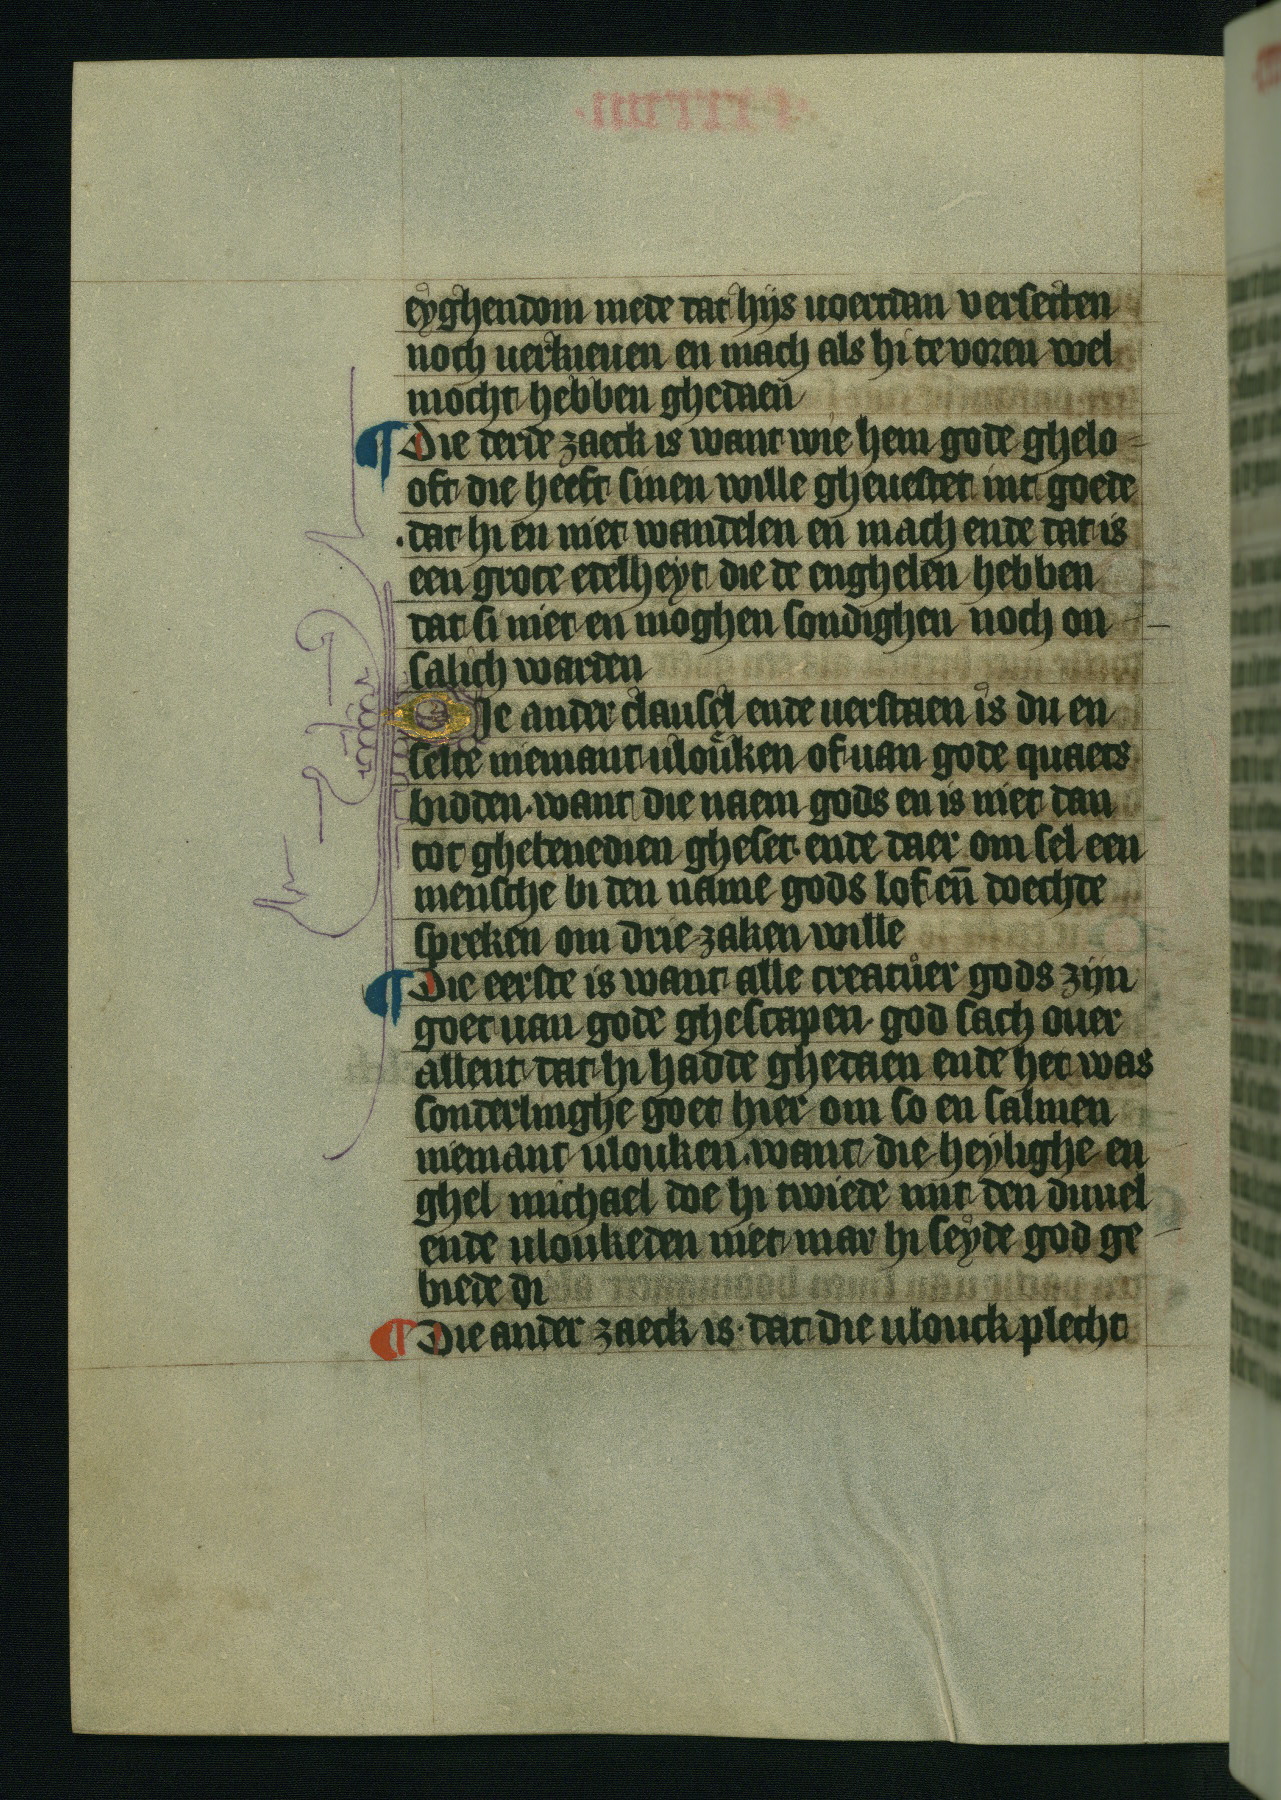 eyghendom mede dat hijs voertdan versetten
noch verkueuen en mach als hi te voren wel
mocht hebben ghedaen
¶ Die derde zaeck is want wie hem gode ghelo
oft die heeft sinen wille gheuestet int goede
dat hi en niet wandelen en mach ende dat is
een grote edelheyt die de enghelen hebben
dat si niet en moghen sondighen noch on
salich warden
Die ander clausel ende uerstaen is du en
selte niemant vlouken of uan gode quaets
bidden. want die naem gods en is niet dan
tot ghebenedien gheset. ende daer om sel een
mensche bi den name gods lof en̄ doechde
spreken om drie zaken wille
¶ Die eerste is want alle creatuer gods zijn
goet uan gode ghescapen. god sach ouer
allent dat hi hadde ghedaen ende het was
sonderlinghe goet hier om so en salmen
niemant vlouken. want die heylighe en
ghel michael doe hi twiede mit den duuel
ende vloukeden niet mar hi seyde god ge
biede di
¶ Die ander zaeck is. dat die vlouck plecht